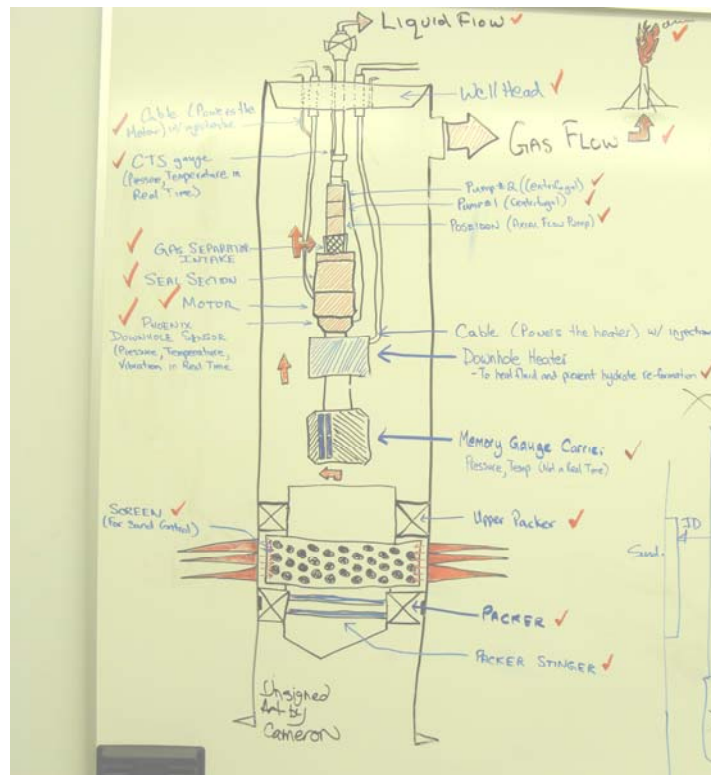 Liquid Flow
Well Head
Cable (Powers the
Motor) w/
Gas Flow
CTS gauge
(Pressure, Temperature in
Real Time)
Pump #2 (Centrifugal)
Pump #1 (Centrifugal)
Poseidon (Axial Flow Pump)
Gas Separator
Intake
Seal Section
Motor
Phoenix
Downhole Sensor
(Pressure, Temperature,
Vibration in Real Time
Cable (Powers the heater) w/ injection
Downhole Heater
- To heat fluid and prevent hydrate re-formation
Memory Gauge Carrier
Pressure, Temp (Not in Real Time)
Screen
(For Sand Control)
Upper Packer
ID
Sand.
Packer
Packer Stinger
Unsigned
Art by
Cameron